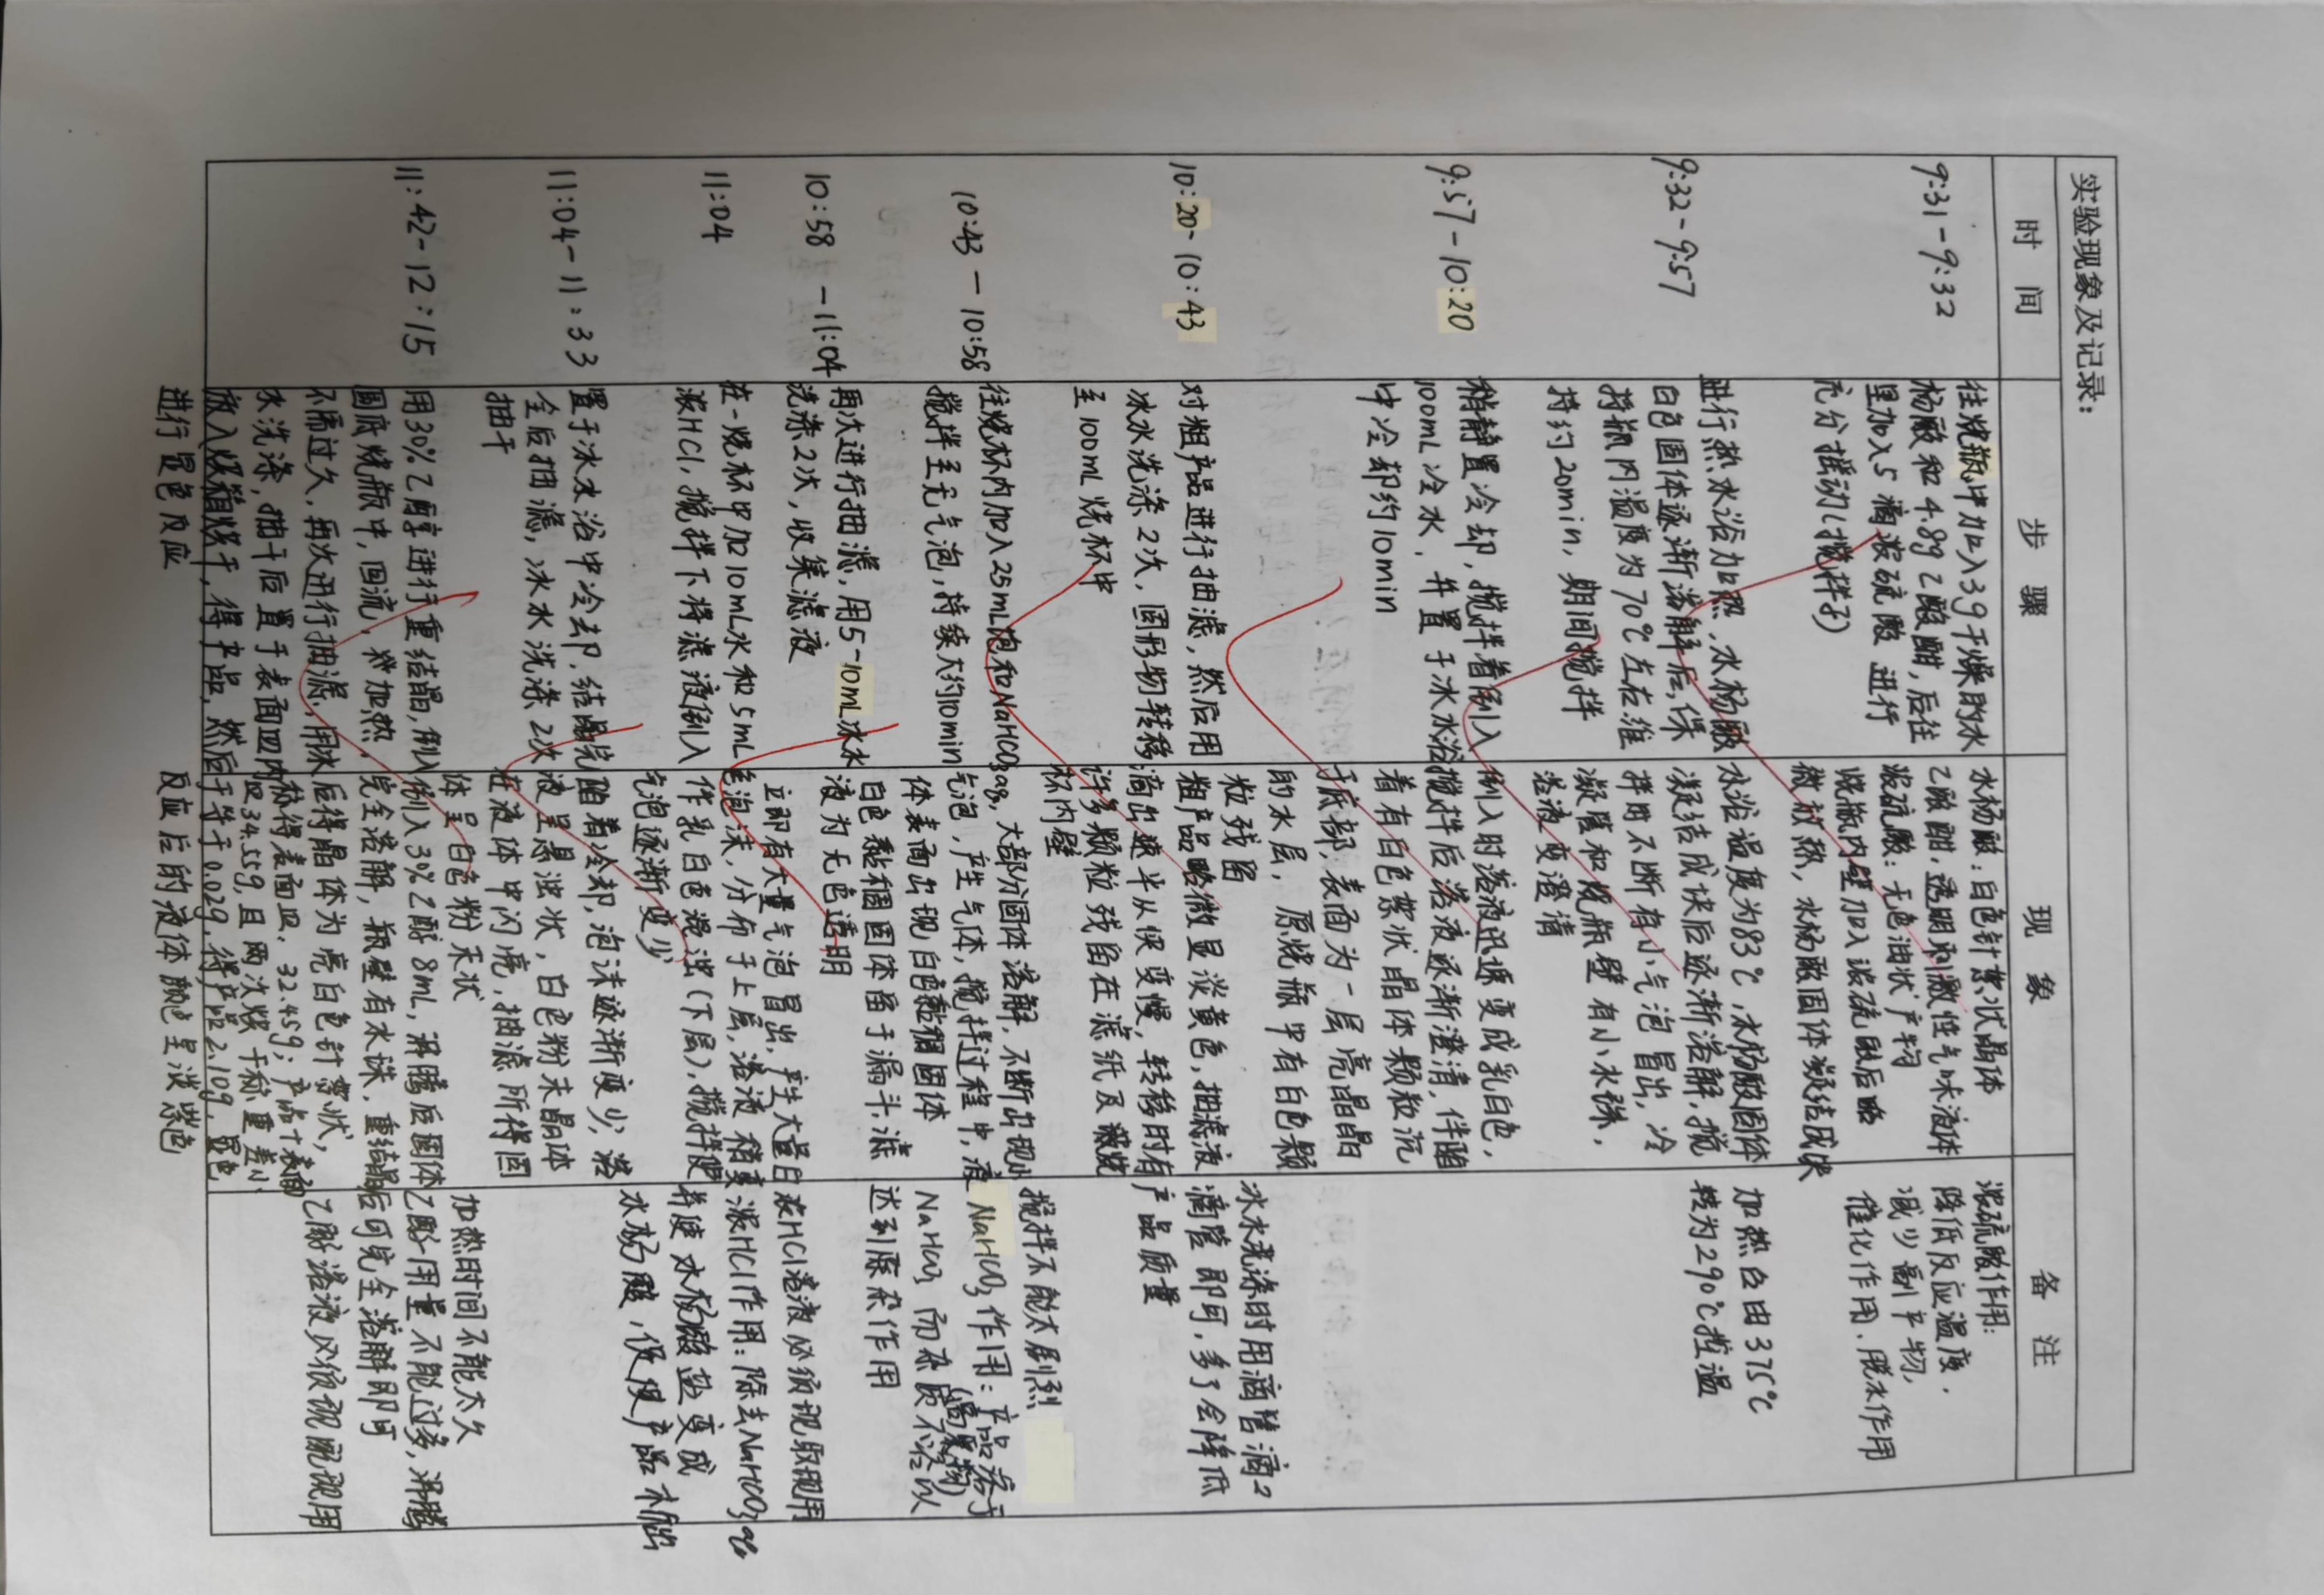 实验现象及记录：
时 间
步 骤
现 象
备 注
9:31-9:32
往烧瓶中加入3g干燥的水
杨酸和4.8g乙酸酐，后往
里加入5滴浓硫酸 进行
充分摇动（搅拌子）
水杨酸：白色针絮状晶体
乙酸酐：透明刺激性气味液体
浓硫酸：无色油状产物
烧瓶内壁加入浓硫酸后略
微放热，水杨酸固体凝结成块
浓硫酸作用：
降低反应温度，
减少副产物，
催化作用、脱水作用
9:32-9:57
进行热水浴加热，水杨酸
白色固体逐渐溶解后，保
持瓶内温度为70℃左右维
持约20min，期间搅拌
水浴温度为83℃，水杨酸固体
凝结成块后逐渐溶解，搅
拌时不断有小气泡冒出，冷
凝管和烧瓶壁有小水珠，
溶液变澄清
加热台由375℃
转为290℃控温
9:57-10:20
稍静置冷却，搅拌着倒入
100mL冷水，并置于冰水浴
中冷却约10min
倒入时溶液迅速变成乳白色，
搅拌后溶液逐渐澄清，伴随
着有白色絮状晶体颗粒沉
于底部，表面为一层亮晶晶
的水层，原烧瓶中有白色颗
粒残留
10:20-10:43
对粗产品进行抽滤，然后用
冰水洗涤2次，固形物转移
至100mL烧杯中
粗产品略微显淡黄色，抽滤液
滴出速率从快变慢，转移时有
许多颗粒残留在滤纸及烧
杯内壁
冰水洗涤时用滴管滴2
滴管即可，多了会降低
产品质量
10:43-10:58
往烧杯内加入25mL饱和NaHCO3aq，
搅拌至无气泡，持续大约10min
大部分固体溶解，不断出现小
气泡，产生气体，搅拌过程中，液
体表面出现白色黏稠固体
搅拌不能太剧烈
NaHCO3作用：产品溶于
NaHCO3而杂质（高聚物）不溶以
达到除杂作用
10:58-11:04
再次进行抽滤，用5-10mL冰水
洗涤2次，收集滤液
白色黏稠固体留于漏斗，滤
液为无色透明
11:04
在一烧杯中加10mL水和5mL
浓HCl，搅拌下将滤液倒入
立即有大量气泡冒出，产生大量白
色泡沫，分布于上层，溶液稍变
作乳白色浑浊（下层），搅拌使
气泡逐渐变少
浓HCl溶液必须现取现用
浓HCl作用：除去NaHCO3aq
并使水杨酸盐变成
水杨酸，促使产品析出
11:04-11:33
置于冰水浴中冷却，结晶完
全后抽滤，冰水洗涤2次
抽干
随着冷却，泡沫逐渐变少，溶
液呈悬浊状，白色粉末晶体
在液体中闪亮，抽滤所得固
体呈白色粉末状
11:42-12:15
用30%乙醇进行重结晶，倒入
圆底烧瓶中，回流，稍加热，
不需过久，再次进行抽滤，用冰
水洗涤，抽干后置于表面皿内
放入烘箱烘干，得产品，然后
进行显色反应
倒入30%乙醇8mL，沸腾后固体
完全溶解，瓶壁有水珠，重结晶
后得晶体为亮白色针絮状，
称得表面皿：32.45g；产品+表面
皿34.55g，且两次烘干称重差小
于等于0.02g，得产品2.10g，显色
反应后的液体颜色呈淡紫色
加热时间不能太久
乙醇用量不能过多，沸腾
后可完全溶解即可
乙醇溶液必须现配现用